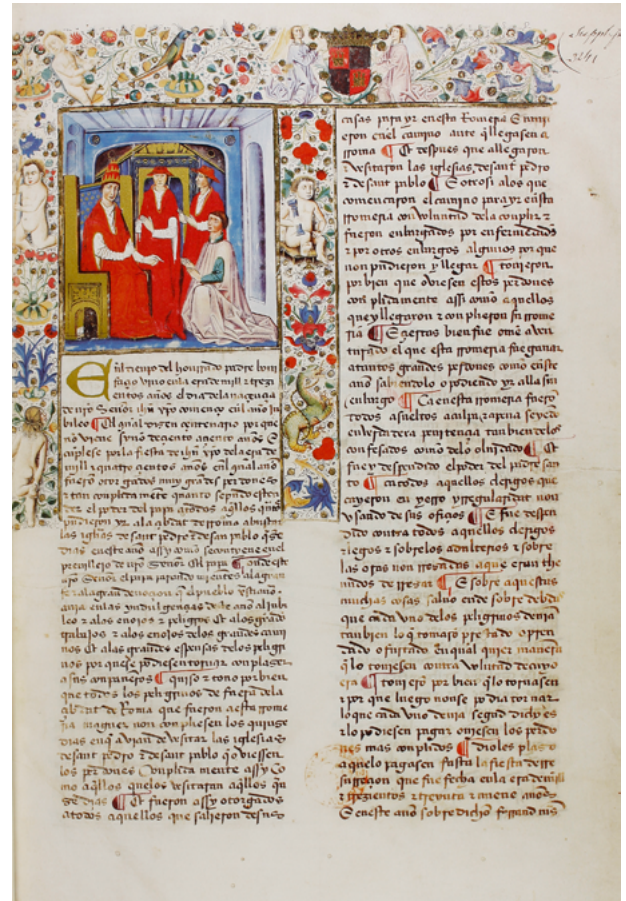 En el tienpo del honrrado padre boni
façio vino en la era de mill & trezi
entos años el dia dela naçençia
de nro Señor ihu xpo començo enl año iu
bileo ¶ El qual dizen çentenario por que
non viene syno de çento a çento años E
cuplese por la fiesta de ihu xpo dela era de
mill & quatro çientos anos enl qual año
fuero otorgados muy grades perdones
& tan conplida mete quanto
el poder del papa a todos aqllos que
pudieron yr ala çibdat de rroma a visitar
las iglias de sant pedro & de sant pablo
dias en este año assy como se contiene en el
preuillejo de nro Señor el papa ¶ onde este
nro Señor el papa parando mientes ala gran
& ala gran deuoçion q el pueblo xstiano
auia enlas yndulgençias deste año del iubi
leo & alos enojos & peligros & alos grades
trabajos & alos enojos delos grades cami
nos & alas grandes espensas delos peligri
nos por que se podiesen tornar con plazer
a sus conpañeros ¶ quiso & touo por bien
que todos los peligrinos de fuera dela
çibdat de Roma que fueron a esta rrome
ria maguer non conpliesen los quinze
dias en q auian de vesitar las iglesias
de sant pedro & de sant pablo q ouiessen
los perdones Conplida mente assy Co
mo aqllos quelos vesitaran aqllos qui
ze dias ¶ Et fueron assy otorgados
a todos aquellos que salieron de sus
casas para yr en esta Romeria E muri
eron enel camino ante q llegasen a
rroma ¶ Et despues que allegaron
& vesitaron las iglesias de sant pedro
& de sant pablo ¶ E otrosi alos que
començaron el camino para yr en esta
rromeria con voluntad dela conplir &
fueron enbargados por enfermedades
& por otros enbargos algunos por que
non pudieron y llegar ¶ touieron
por bien que ouiesen estos perdones
conplida mente assi como aquellos
que y llegaron & conplieron su rrome
ria ¶ E çiertos bien fue ome auen
turado el que esta rromeria fue ganar
atantos grandes perdones como en este
año sabiendolo o podiendo yr alla sin
enbargo ¶ Ca en esta rromeria fuero
todos asueltos a culpa & a pena seyedo
en verdadera penitençia tanbien delos
confesados como delo oluidado ¶ Et
fue y despendido el poder del padre san
to ¶ en todos aquellos clerigos que
cayeron en yerro & yrregularidat non
vsando de sus ofiçios ¶ E fue despen
dido contra todos aquellos clerigos
& legos & sobre los adulterios & sobre
las oras non rrezadas a que eran the
nudos de rrezar ¶ E sobre aquestas
muchas cosas saluo ende sobre debda
que cada vno delos peligrinos deuian
tanbien lo q tomaro prestado o pren
dado o furtado en qual quier manera
q lo touiesen contra voluntad de cuyo
era ¶ touiero por bien q lo tornasen
& por que luego non se podia tornar
lo que cada vno deuia segud dicho es
& lo podiesen pagar ouiesen los perdo
nes mas conplidos ¶ dioles plazo
a que lo pagasen fasta la fiesta de rre
surreçion que fue fecha enla era de mill
& trezientos & treynta & nueue anos
E en este año sobre dicho